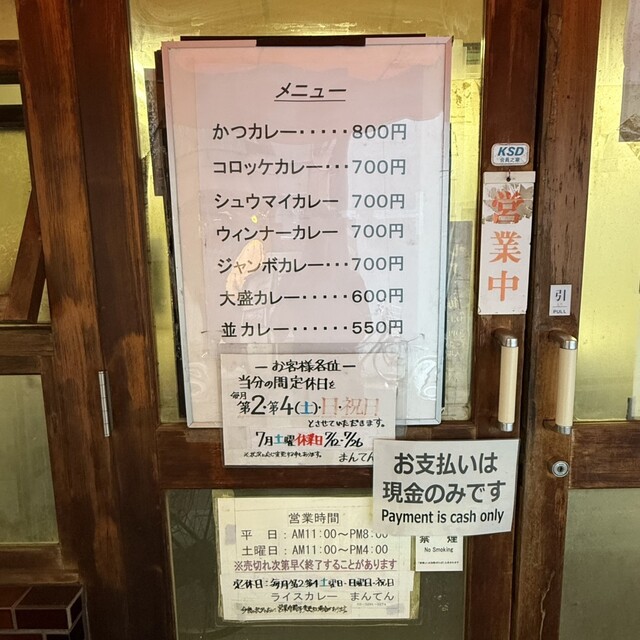 メニュー
かつカレー・・・・・800円
コロッケカレー・・・700円
シュウマイカレー 700円
ウィンナーカレー 700円
ジャンボカレー・・・700円
大盛カレー・・・・・600円
並カレー・・・・・・550円
KSD
営業中
引
PULL
ーお客様各位ー
当分の間定休日を
毎月
第2・第4(土)・日・祝日
とさせていただきます。
7月土曜休業日7/12・7/26
まんてん
お支払いは
現金のみです
Payment is cash only
営業時間
平 日：AM11:00〜PM8:00
土曜日：AM11:00〜PM4:00
※売切れ次第早く終了することがあります
定休日：毎月第2第4土曜日・日曜日・祝日
ライスカレー まんてん
禁煙
No Smoking